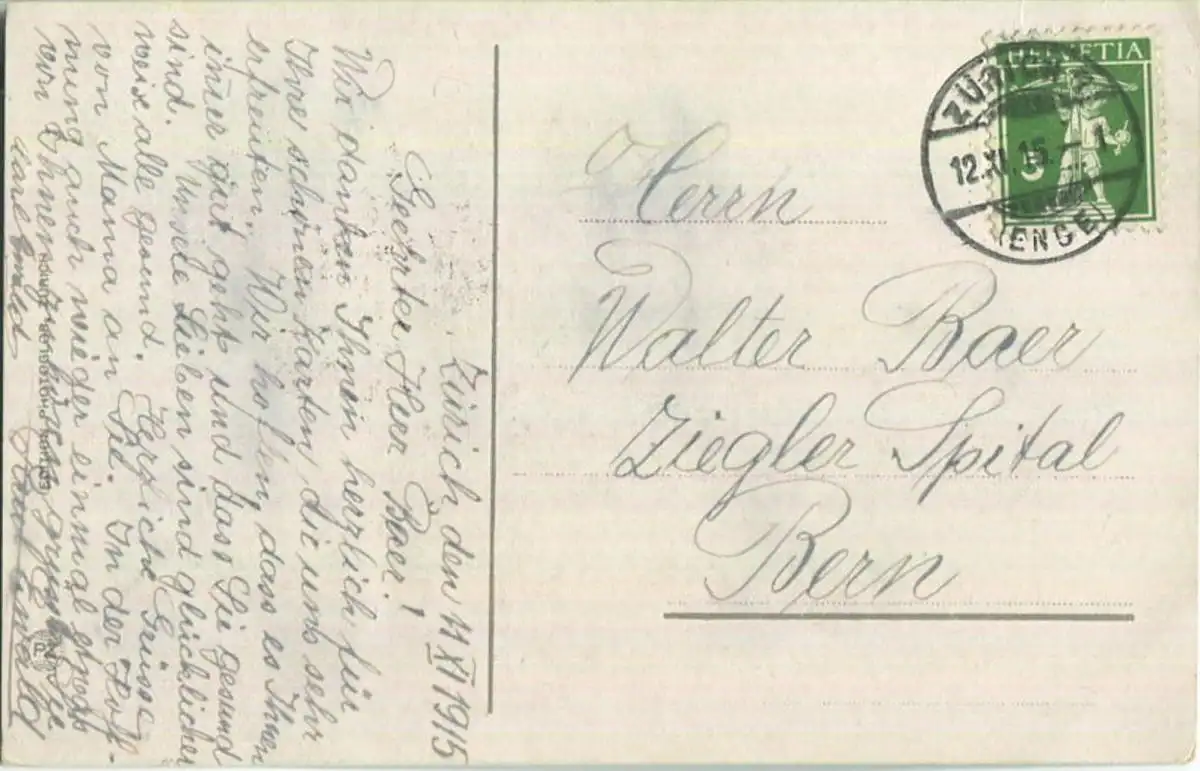 Zürich, den 11 XI 1915
Geehrter Herr Baer!
Wir danken Ihnen herzlich für
Ihre schönen Karten, die uns sehr
erfreuten. Wir hoffen, dass es Ihnen
immer gut geht und dass Sie gesund
sind. Unsere Lieben sind glücklicher
weise alle gesund. Herzliche Grüsse
von Mama an Sie. In der Hoff-
nung auch wieder einmal etwas
von Ihnen zu hören grüssen Sie
HELVETIA
5
ZÜRICH
12.XI.15.-1
(ENGE)
Herrn
Walter Baer
Ziegler Spital
Bern